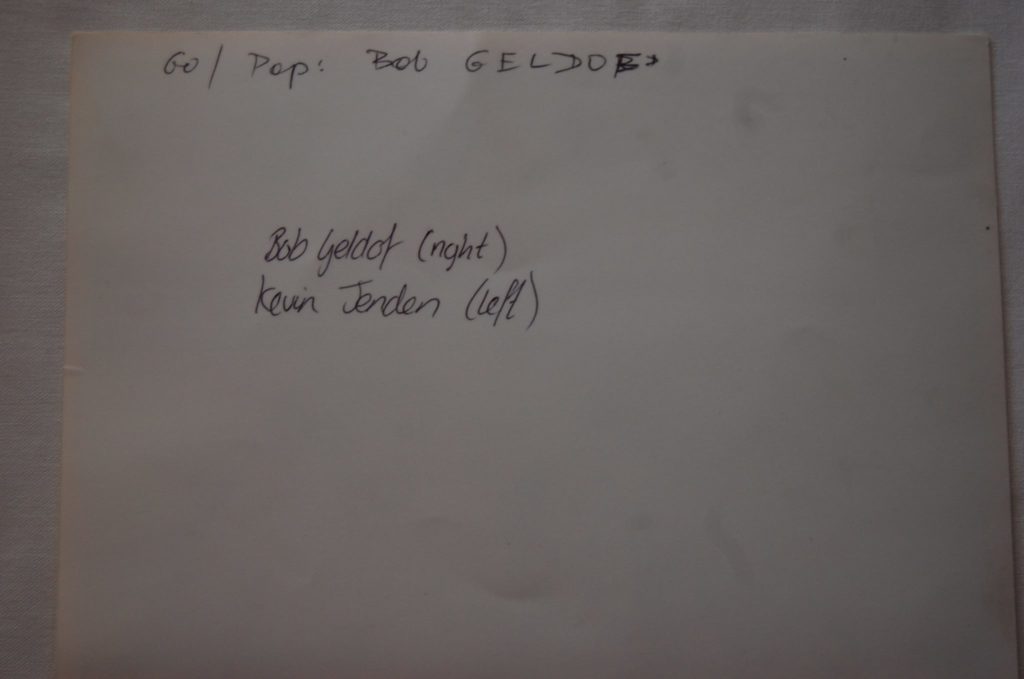 GO/ Pop: Bob GELDOF
Bob Geldof (right)
Kevin Jenden (left)